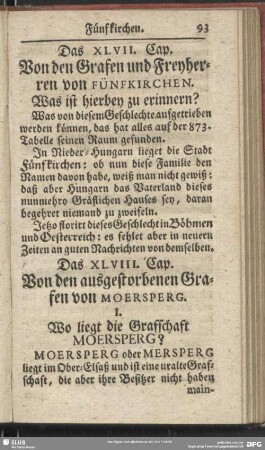 Fünfkirchen. 93
Das XLVII. Cap.
Von den Grafen und Freyher-
ren von FÜNFKIRCHEN.
Was ist hierbey zu erinnern?
Was von diesem Geschlechte aufgetrieben
werden können, das hat alles auf der 873.
Tabelle seinen Raum gefunden.
In Nieder-Hungarn lieget die Stadt
Fünfkirchen: ob nun diese Familie den
Namen davon habe, weiß man nicht gewiß:
daß aber Hungarn das Vaterland dieses
nunmehro Gräflichen Hauses sey, daran
begehret niemand zu zweifeln.
Jetzo florirt dieses Geschlecht in Böhmen
und Oesterreich: es fehlet aber in neuern
Zeiten an guten Nachrichten von demselben.
Das XLVIII. Cap.
Von den ausgestorbenen Gra-
fen von MOERSPERG.
I.
Wo liegt die Grafschaft
MOERSPERG?
MOERSPERG oder MERSPERG
liegt im Ober-Elsaß und ist eine uralte Graf-
schaft, die aber ihre Besitzer nicht haben
main-
SLUB